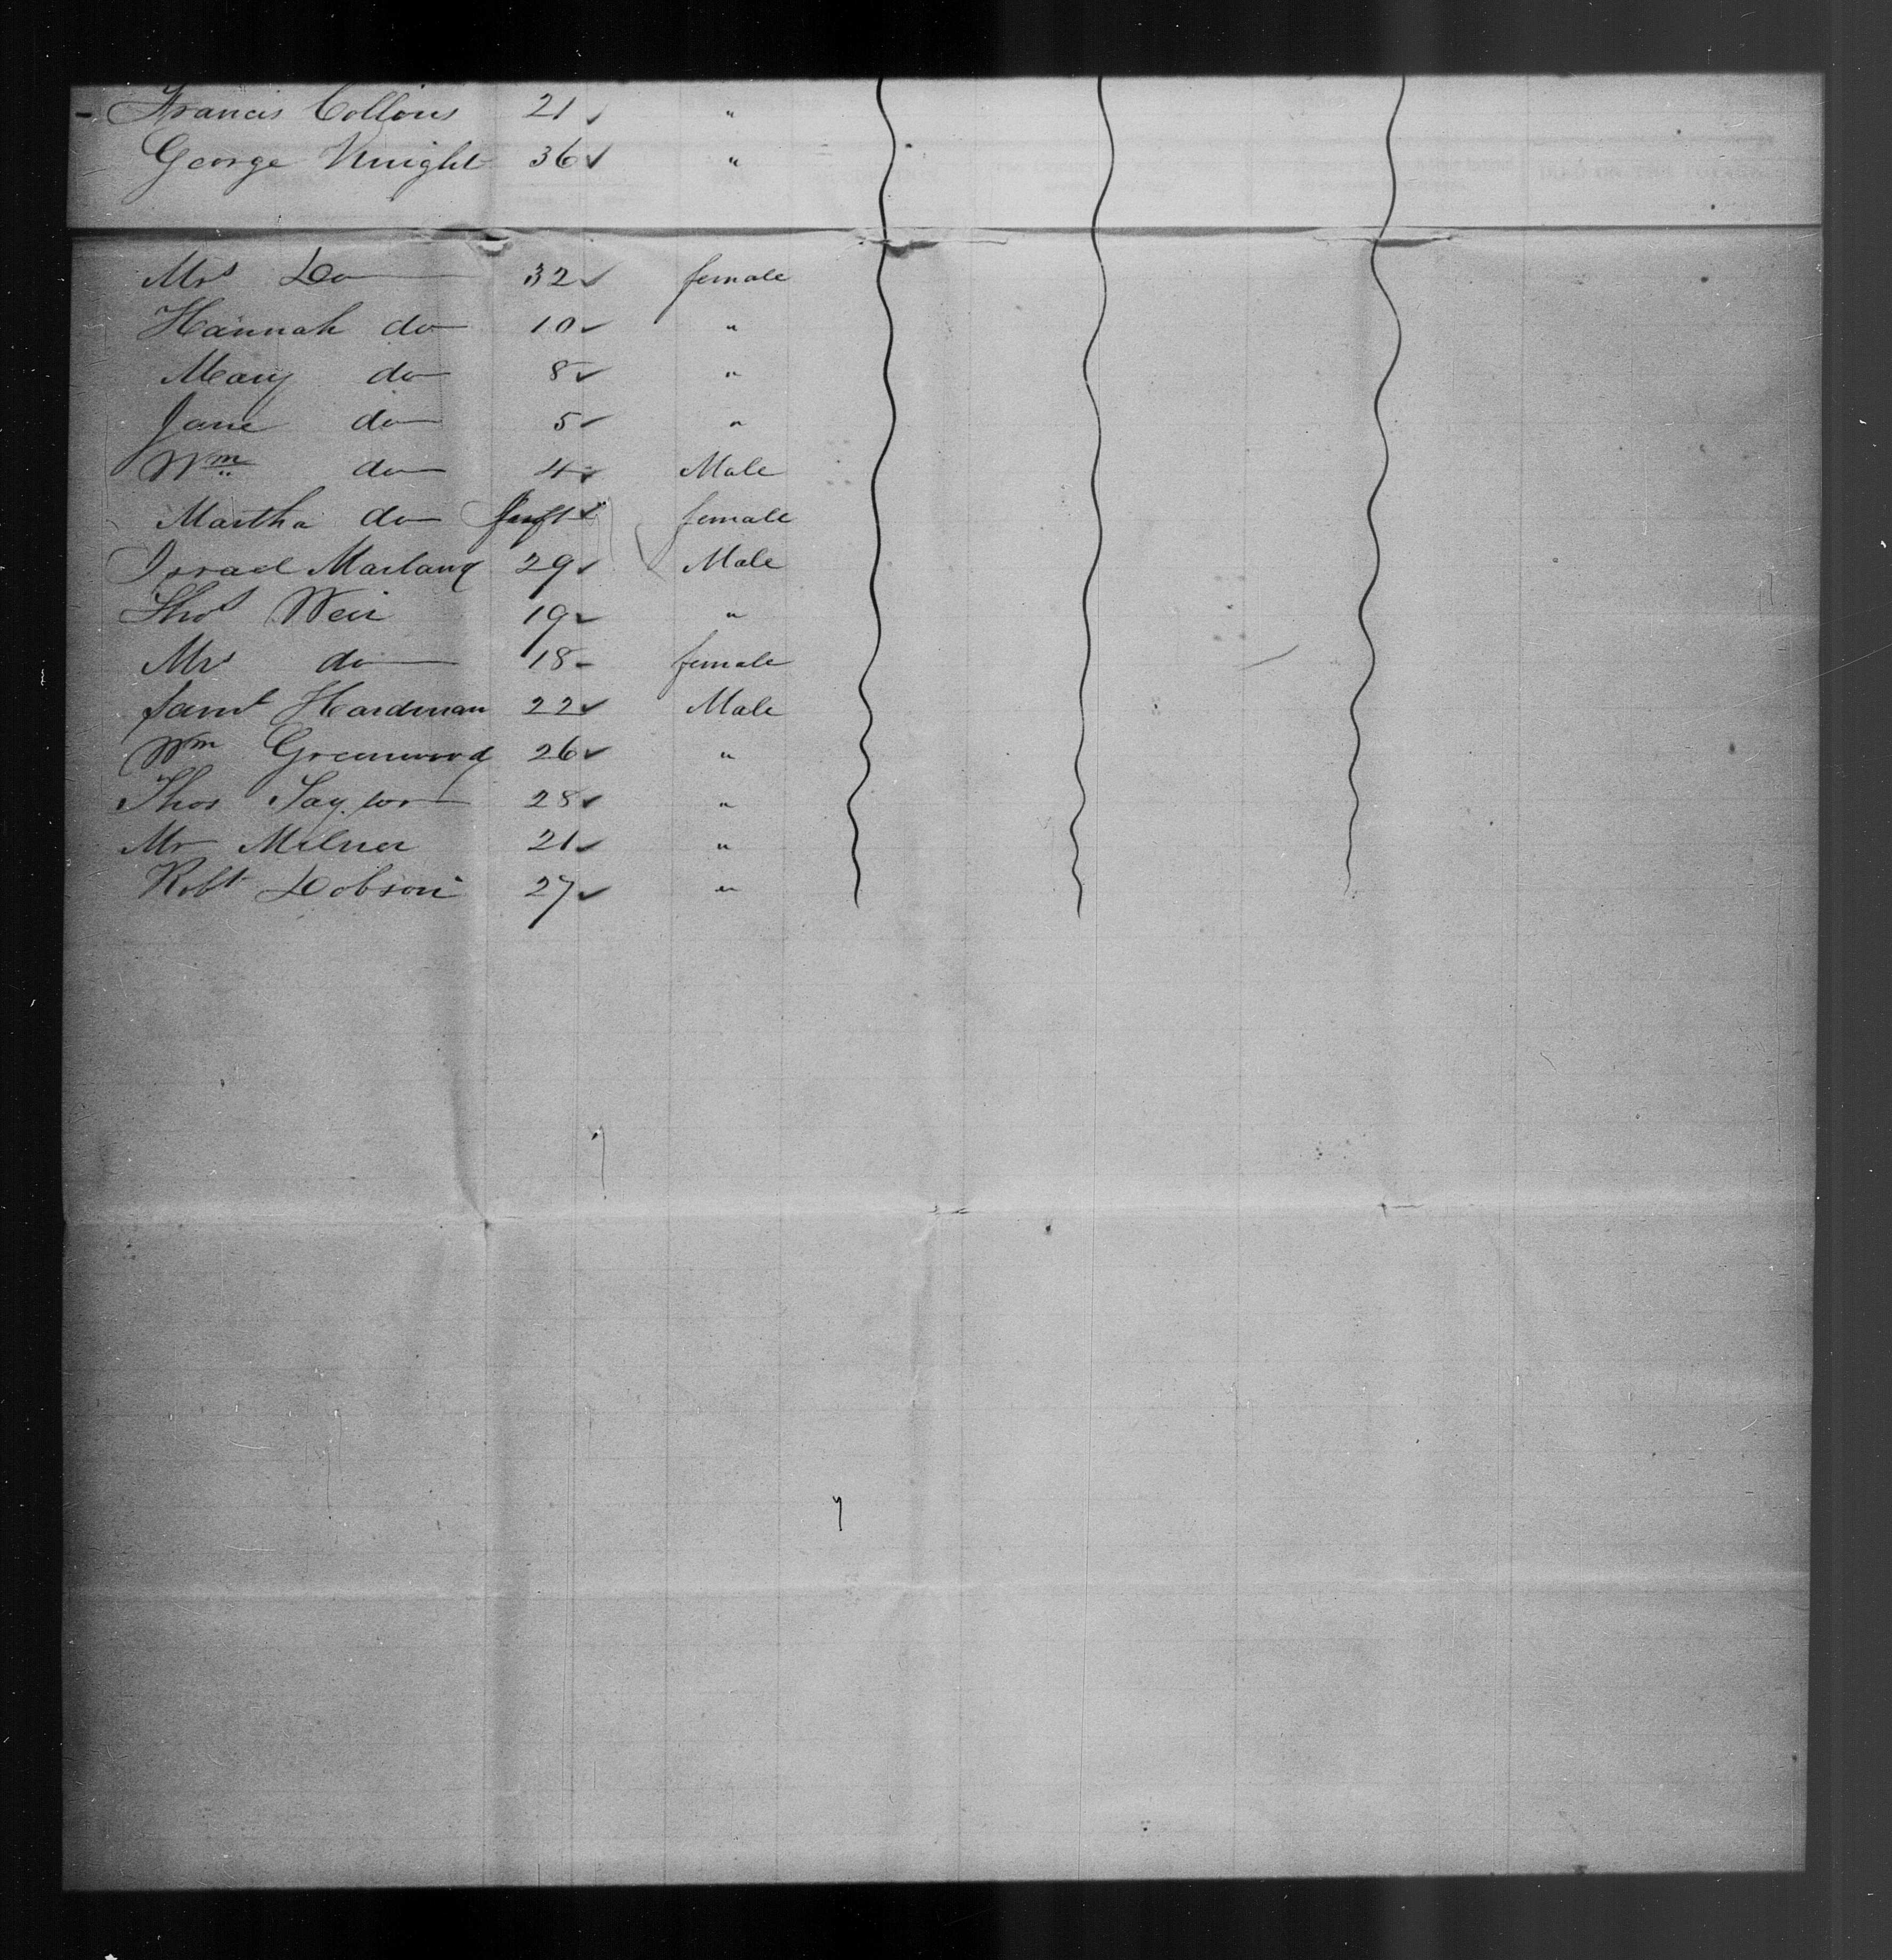 Francis Collins 21 "
George Knight 36 "
Mrs Do 32 female
Hannah do 10 "
Mary do 8 "
Jane do 5 "
Wm do 4 Male
Martha do Inft female
Israel Marland 29 Male
Thos Weir 19 "
Mrs do 18 female
Saml Hardman 22 Male
Wm Greenwood 26 "
Thos Taylor 28 "
Mr Milner 21 "
Robt Dobson 27 "